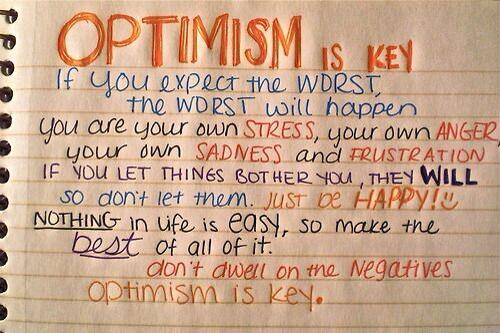 OPTIMISM IS KEY
If you expect the WORST,
the WORST will happen
you are your own STRESS, your own ANGER,
your own SADNESS and FRUSTRATION
IF YOU LET THINGS BOTHER YOU, THEY WILL
so don't let them. JUST be HAPPY!
NOTHING in life is easy, so make the
best of all of it.
don't dwell on the Negatives
Optimism is key.